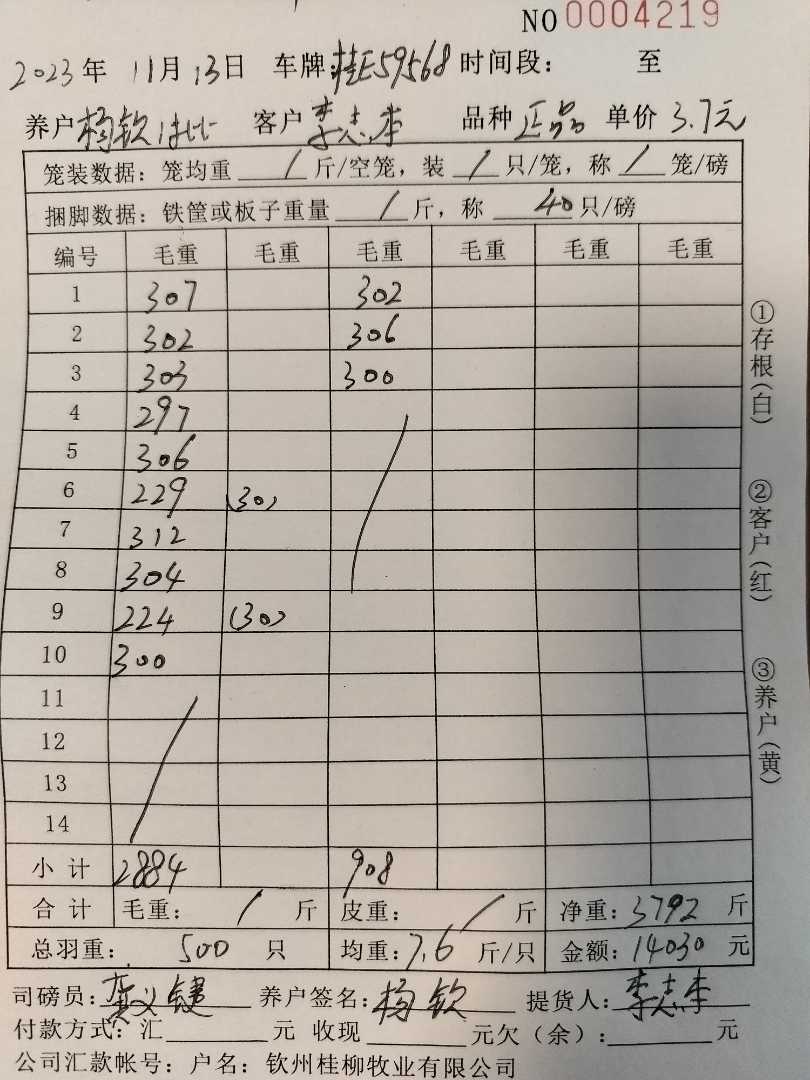 NO 0004219
2023年 11月 13日 车牌:桂E59568 时间段: 至
养户 杨钦 客户 李志李 品种 正品 单价 3.7元
笼装数据: 笼均重 / 斤/空笼, 装 / 只/笼, 称 / 笼/磅
捆脚数据: 铁筐或板子重量 / 斤, 称 40 只/磅
编号 毛重 毛重 毛重 毛重 毛重 毛重
1 307 302
2 302 306
3 303 300
4 297
5 306
6 229 (30)
7 312
8 304
9 224 (30)
10 300
11
12
13
14
小 计 2884 908
合 计 毛重: / 斤 皮重: / 斤 净重: 3792 斤
总羽重: 500 只 均重: 7.6 斤/只 金额: 14030 元
司磅员: 养户签名: 杨钦 提货人: 李志李
付款方式: 汇 元 收现 元欠(余): 元
公司汇款帐号: 户名: 钦州桂柳牧业有限公司
①存根(白)
②客户(红)
③养户(黄)